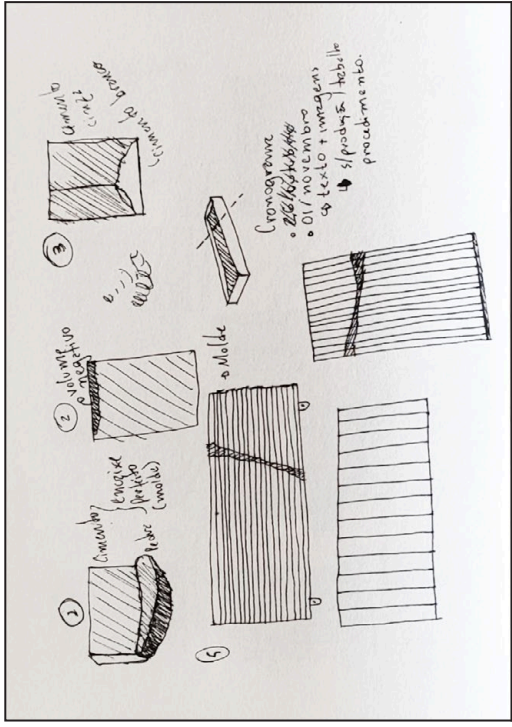 1
Cimento
Pedra
encaixe
perfeito
(molde)
2
volume
negativo
3
cimento
cinza
cimento branco
Molde
Cronograma
• 01/novembro
↳ texto + imagens
↳ s/produção/trabalho
procedimento.